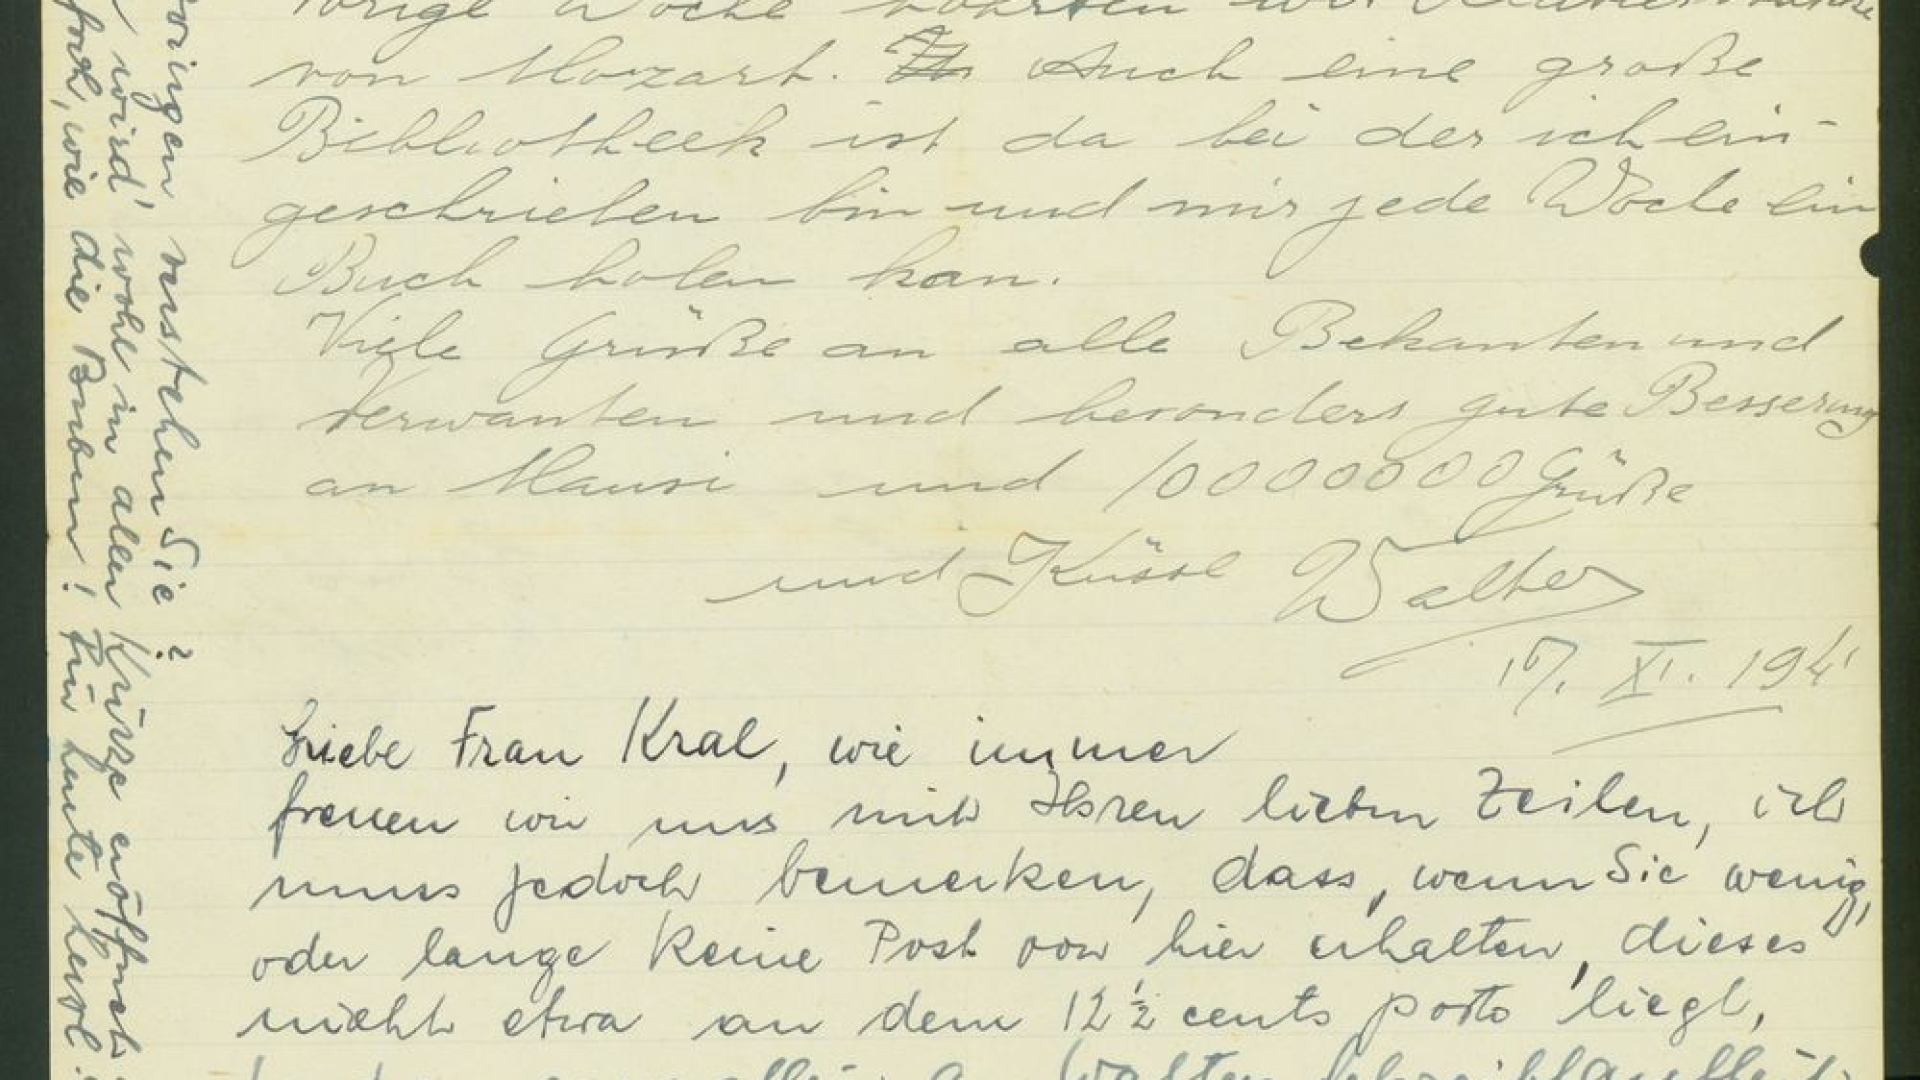 vorige Woche höhrten wir
von Mozart. Auch eine große
Bibliotheek ist da bei der ich ein-
geschrieben bin und mir jede Woche ein
Buch holen kan.
Viele Grüße an alle Bekanten und
Verwanten und besonders gute Besserung
an Mausi und 10000000 Grüße
und Küsse Walter
17. XI. 1941
Liebe Frau Kral, wie immer
freuen wir uns mit Ihren lieben Zeilen, ich
muss jedoch bemerken, dass, wenn Sie wenig,
oder lange keine Post von hier erhalten, dieses
nicht etwa an dem 12½ cents porto liegt,
verstehen Sie?
wird' wohl in aller Kürze eröffnet
wie die Bomben! Für heute